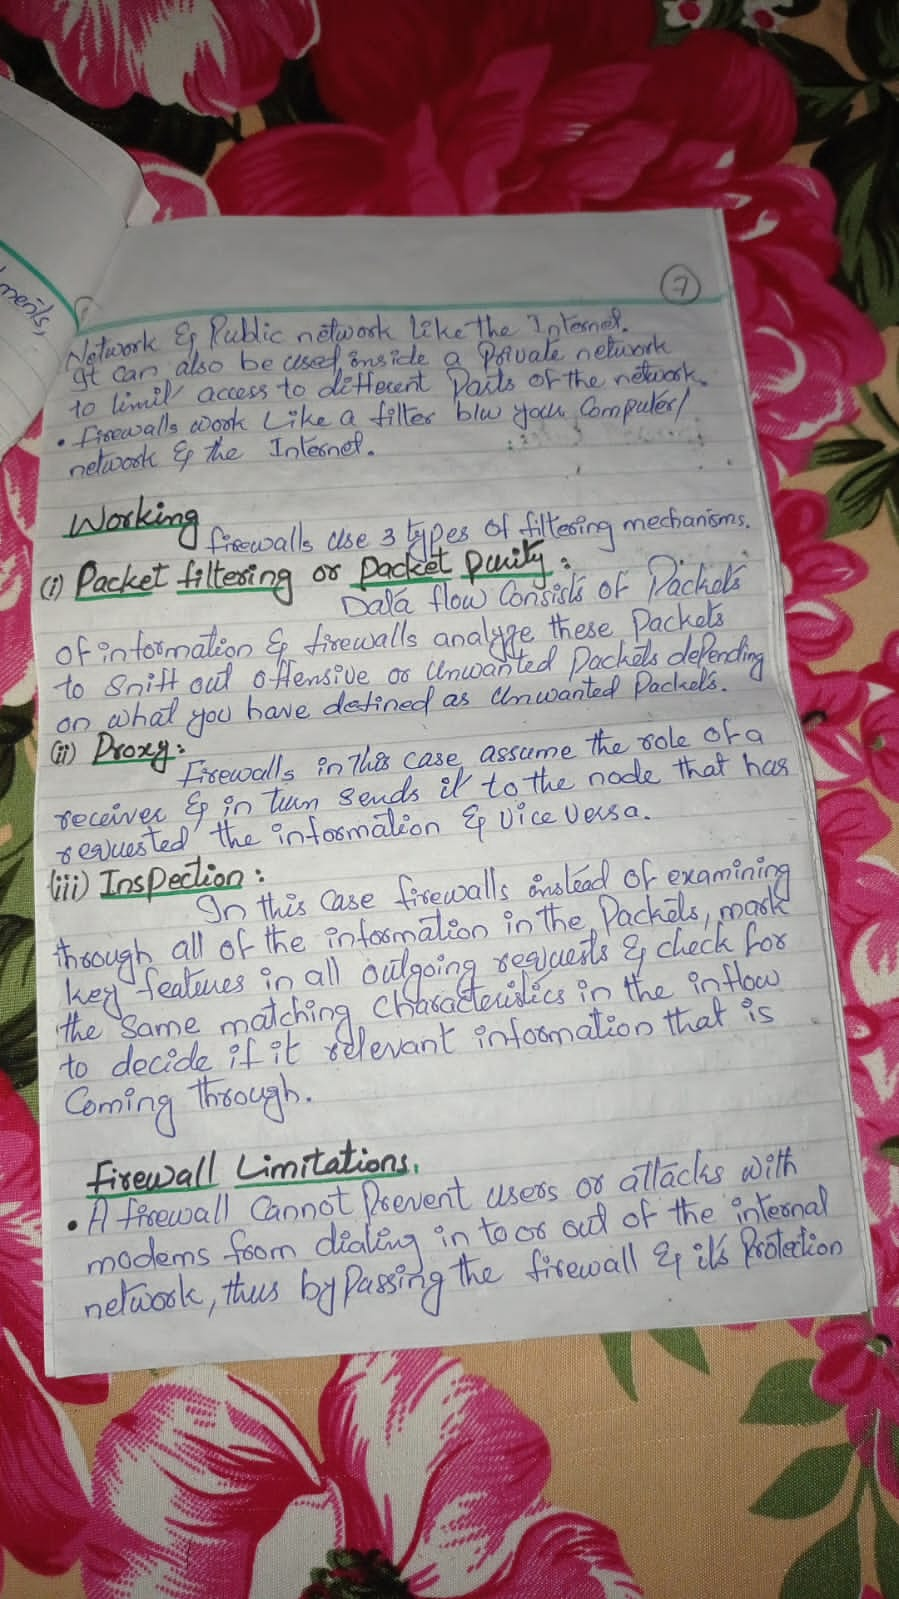 ments,
7
Network & Public network like the Internet.
It can also be used inside a Private network
to limit access to different Parts of the network.
• firewalls work Like a filter b/w your Computer/
network & the Internet.
Working
firewalls use 3 types of filtering mechanisms.
(i) Packet filtering or packet purity:
Data flow Consists of Packets
of information & firewalls analyze these Packets
to Sniff out offensive or Unwanted Packets depending
on what you have defined as Unwanted Packets.
(ii) Proxy:
Firewalls in this case assume the role of a
receiver & in turn sends it to the node that has
requested the information & vice versa.
(iii) Inspection:
In this Case firewalls instead of examining
through all of the information in the Packets, mark
key features in all outgoing requests & check for
the Same matching Characteristics in the inflow
to decide if it relevant information that is
Coming through.
Firewall Limitations.
• A firewall Cannot Prevent users or attacks with
modems from dialing in to or out of the internal
network, thus by passing the firewall & it's Protection